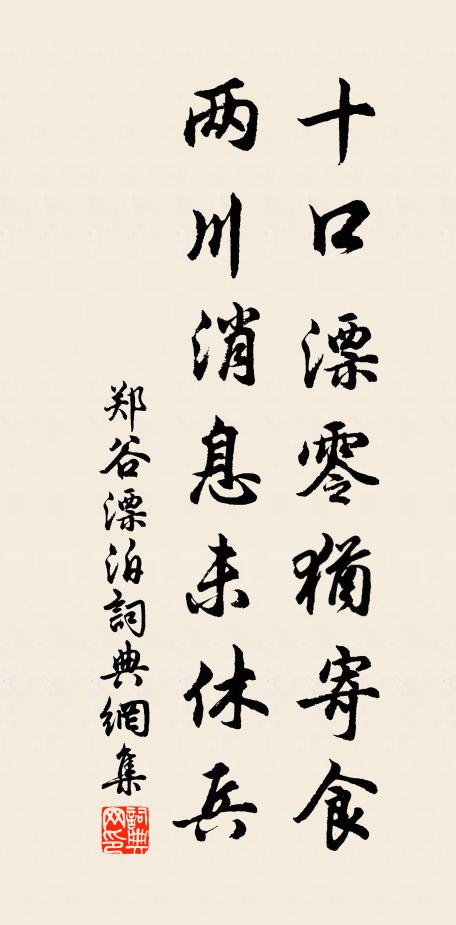 十口漂零猶寄食
两川消息未休兵
郑谷漂泊詞典網集
詞典網印